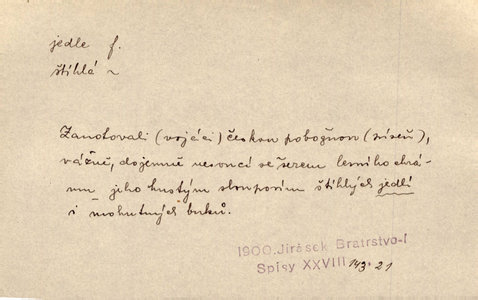 jedle f.
štíhlá ~
Zanotovali (vojáci) českou pobožnou (píseň),
vážně, dojemně nesoucí se šerem lesního chrá-
mu jeho hustým sloupovím štíhlých jedlí
i mohutných buků.
1900. Jirásek Bratrstvo-I
Spisy XXVIII 143.21